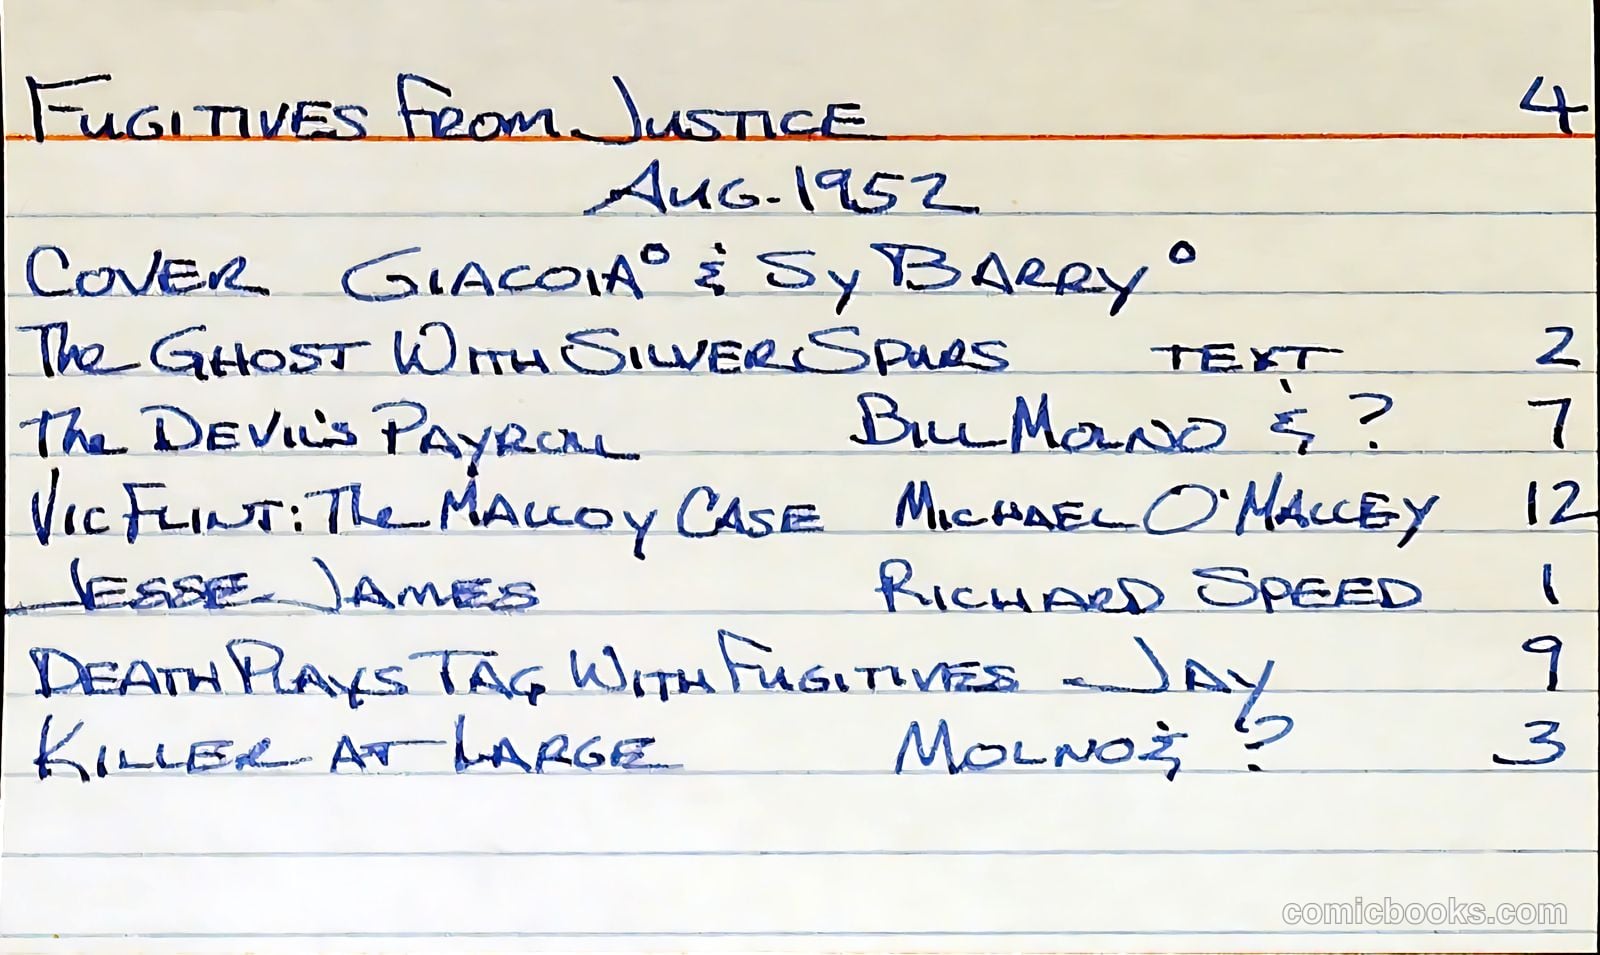 FUGITIVES FROM JUSTICE 4
AUG. 1952
COVER GIACOIA° & SY BARRY°
The GHOST WITH SILVER SPURS TEXT 2
The DEVIL'S PAYROLL BILL MOLNO & ? 7
VIC FLINT: The MALLOY CASE MICHAEL O'MALLEY 12
JESSE JAMES RICHARD SPEED 1
DEATH PLAYS TAG WITH FUGITIVES JAY 9
KILLER AT LARGE MOLNO & ? 3
comicbooks.com